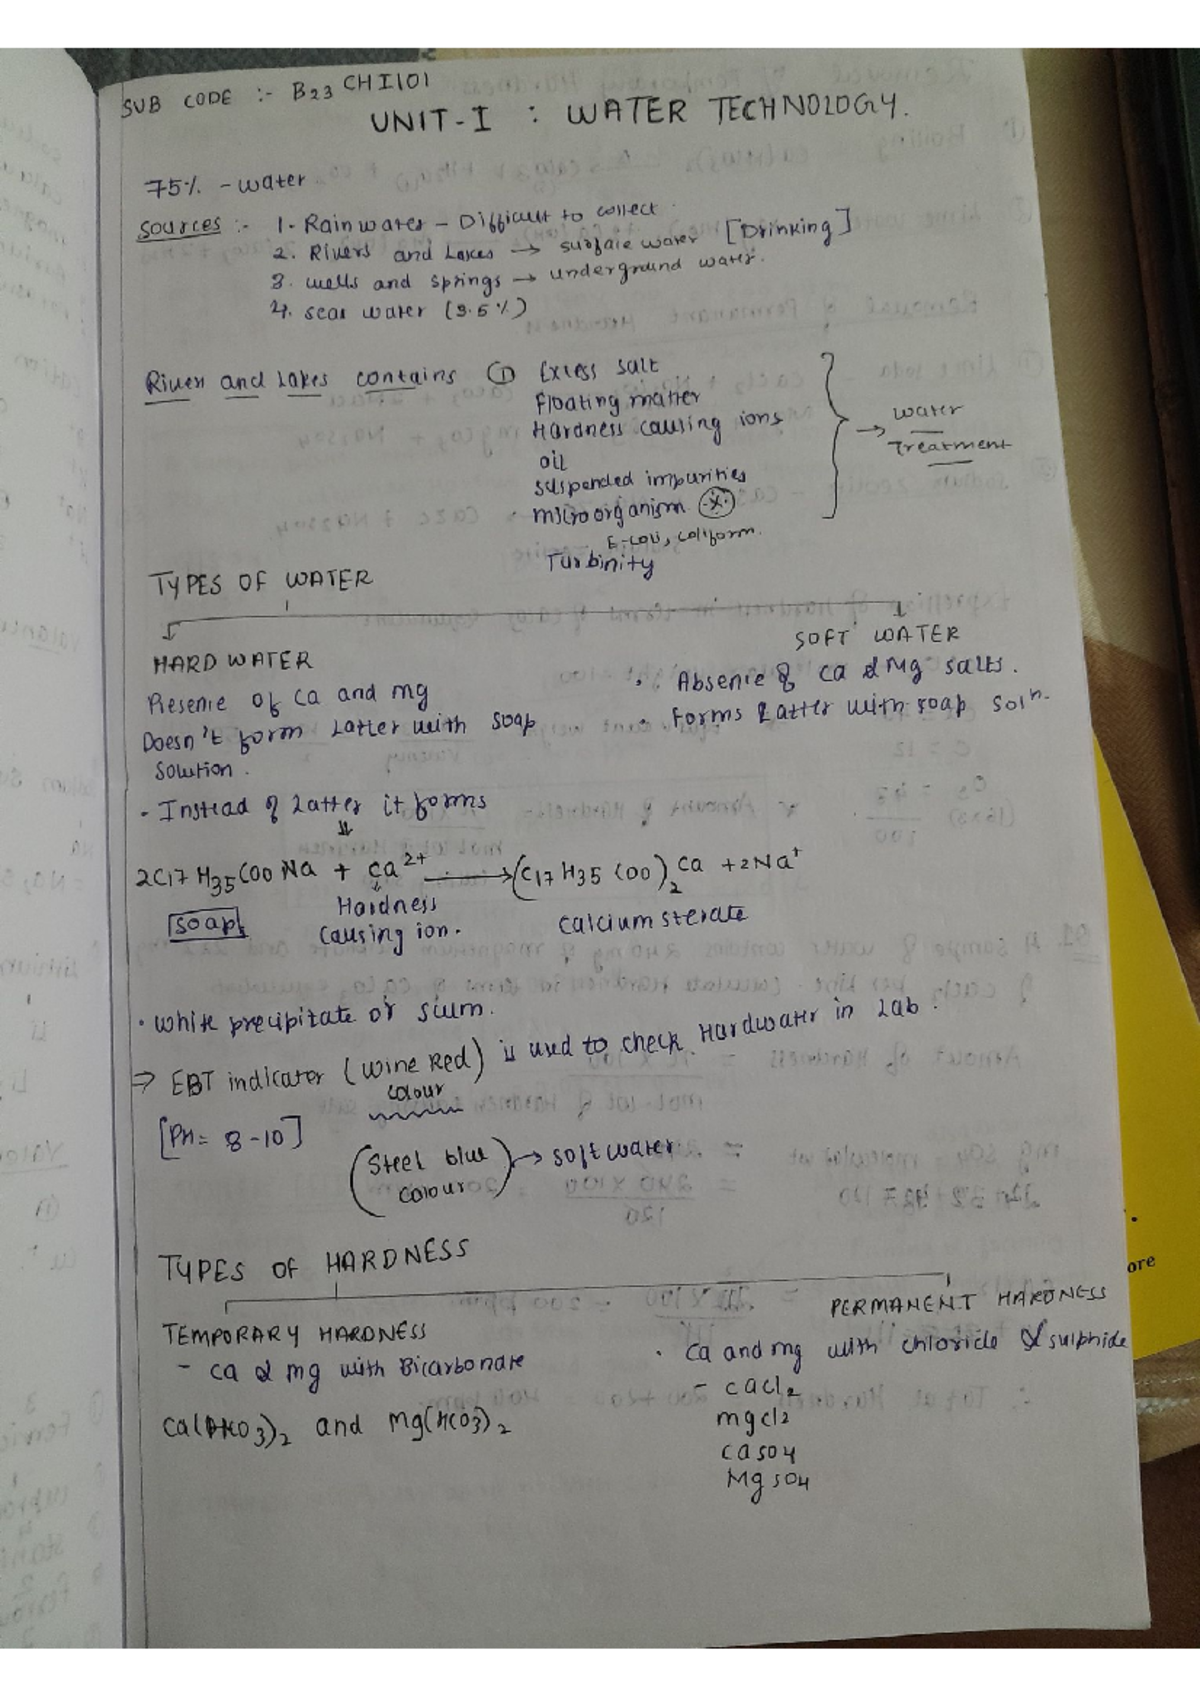 SUB CODE :- B23 CHI101
UNIT-I : WATER TECHNOLOGY.
75% - water
Sources :- 1. Rain water - Difficult to collect.
2. Rivers and Lakes → surface water [Drinking]
3. wells and springs → underground water.
4. sear water (3.5%)
River and Lakes contains ① Excess salt
Floating matter
Hardness causing ions
oil
suspended impurities
microorganism
E-coli, coliform.
Turbinity
→ water
Treatment
TYPES OF WATER
HARD WATER
Presence of Ca and mg
Doesn't form Latter with soap
solution.
- Instead of Latter it forms
SOFT WATER
. Absence of Ca & Mg salts.
. Forms Latter with soap soln.
2C17 H35 COO Na + Ca2+ → (C17 H35 COO)2 Ca + 2Na+
soap
Hardness
causing ion.
Calcium sterate
. white precipitate or scum.
⇒ EBT indicator (wine Red) is used to check Hardwater in Lab.
colour
[PH = 8-10]
(Steel blue
colour) → soft water
TYPES OF HARDNESS
TEMPORARY HARDNESS
- Ca & mg with Bicarbonate
Ca(HCO3)2 and Mg(HCO3)2
PERMANENT HARDNESS
. Ca and mg with chloride & sulphide
- CaCl2
mgcl2
CaSO4
MgSO4
ore